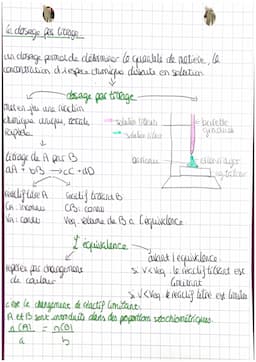 le dosage par titrage.
un dosage permet de déterminer la quantité de matière, la
concentration d'espèce chimique dissoute en solution
dosage par titrage
met en jeu une réaction
chimique unique, totale
rapide
solution titrant
solution titrée
burette
graduée
titrage de A par B
aA + bB → cC + dD
agitateur
réactif titré A
réactif titrant B
CA : inconnu
CB : connu
VA : connu
Veq : volume de B à l'équivalence
l'équivalence
repérée par changement
de couleur
avant l'équivalence
si V < Veq : le réactif titrant est
limitant
si V < Veq : le réactif titré est limitant
c'est le changement de réactif limitant
A et B sont introduits dans des proportions stoechiométriques.
n(A) = n(B)
a b